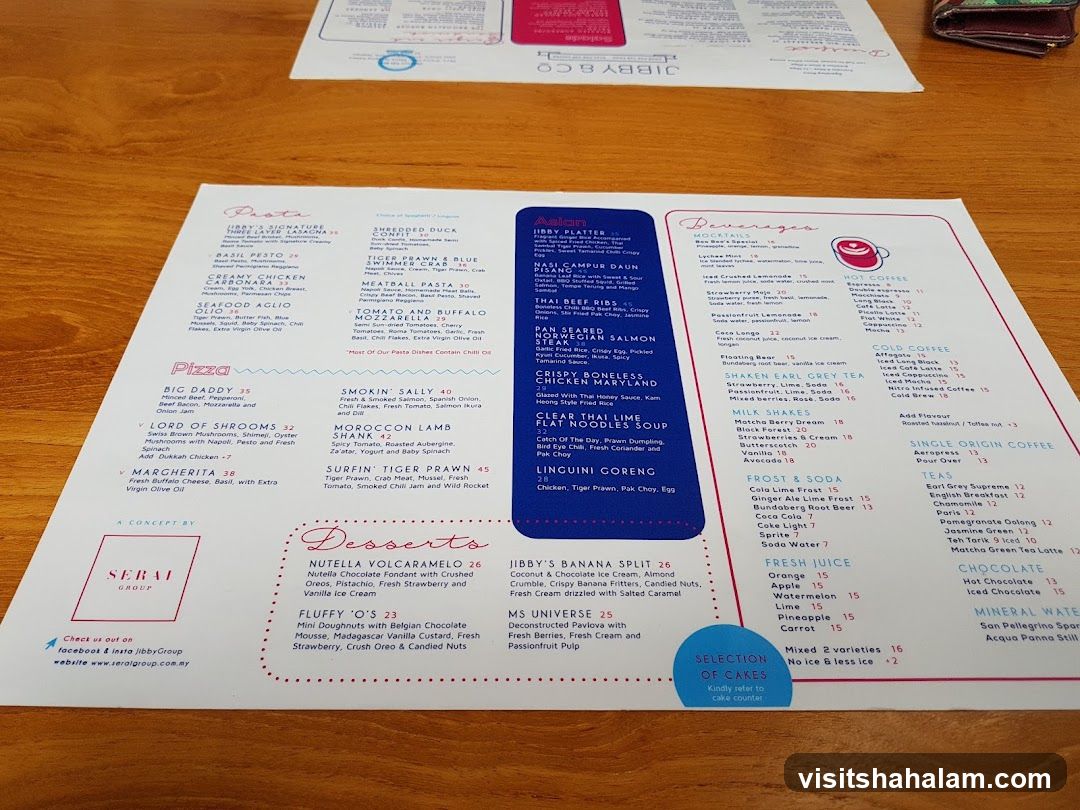 JIBBY & CO
Salads
Pasta
Choice of Spaghetti / Linguine
JIBBY'S SIGNATURE
THREE LAYER LASAGNA 35
Minced Beef Brisket,
Roma Tomato with Signature Creamy
Basil Sauce
BASIL PESTO 29
Basil Pesto, Mushrooms,
Shaved Parmigiano Reggiano
CREAMY CHICKEN
CARBONARA 33
Cream, Egg Yolk, Chicken Breast,
Mushrooms, Parmesan Chips
SEAFOOD AGLIO
OLIO 36
Tiger Prawn, Butter Fish, Blue
Mussels, Squid, Baby Spinach, Chili
Flakes, Extra Virgin Olive Oil
SHREDDED DUCK
CONFIT 30
Duck Confit, Homemade Semi
Sun-dried Tomatoes,
Baby Spinach
TIGER PRAWN & BLUE
SWIMMER CRAB 36
Napoli Sauce, Cream, Tiger Prawn, Crab
Meat, Chives
MEATBALL PASTA 30
Napoli Sauce, Homemade Meat Balls,
Crispy Beef Bacon, Basil Pesto, Shaved
Parmigiano Reggiano
v TOMATO AND BUFFALO
MOZZARELLA 29
Semi Sun-dried Tomatoes, Cherry
Tomatoes, Roma Tomatoes, Garlic, Fresh
Basil, Chili Flakes, Extra Virgin Olive Oil
*Most Of Our Pasta Dishes Contain Chili Oil
Pizza
BIG DADDY 35
Minced Beef, Pepperoni,
Beef Bacon, Mozzarella and
Onion Jam
v LORD OF SHROOMS 32
Swiss Brown Mushrooms, Shimeji, Oyster
Mushrooms with Napoli, Pesto and Fresh
Spinach
Add Dukkah Chicken +7
v MARGHERITA 38
Fresh Buffalo Cheese, Basil, with Extra
Virgin Olive Oil
SMOKIN' SALLY 40
Fresh & Smoked Salmon, Spanish Onion,
Chili Flakes, Fresh Tomato, Salmon Ikura
and Dill
MOROCCON LAMB
SHANK 42
Spicy Tomato, Roasted Aubergine,
Za'atar, Yogurt and Baby Spinach
SURFIN' TIGER PRAWN 45
Tiger Prawn, Crab Meat, Mussel, Fresh
Tomato, Smoked Chili Jam and Wild Rocket
Asian
JIBBY PLATTER 35
Fragrant Ginger Rice Accompanied
with Spiced Fried Chicken, Thai
Sambal Tiger Prawn, Cucumber
Pickles, Sweet Tamarind Chili Crispy
Egg
NASI CAMPUR DAUN
PISANG 45
Banana Leaf Rice with Sweet & Sour
Oxtail, BBQ Stuffed Squid, Grilled
Salmon, Tempe Terung and Mango
Sambal
THAI BEEF RIBS 45
Boneless Chili BBQ Beef Ribs, Crispy
Onions, Stir Fried Pak Choy, Jasmine
Rice
PAN SEARED
NORWEGIAN SALMON
STEAK 38
Garlic Fried Rice, Crispy Egg, Pickled
Kyuri Cucumber, Ikura, Spicy
Tamarind Sauce
CRISPY BONELESS
CHICKEN MARYLAND
29
Glazed With Thai Honey Sauce, Kam
Heong Style Fried Rice
CLEAR THAI LIME
FLAT NOODLES SOUP
32
Catch Of The Day, Prawn Dumpling,
Bird Eye Chili, Fresh Coriander and
Pak Choy
LINGUINI GORENG
28
Chicken, Tiger Prawn, Pak Choy, Egg
Desserts
NUTELLA VOLCARAMELO 26
Nutella Chocolate Fondant with Crushed
Oreos, Pistachio, Fresh Strawberry and
Vanilla Ice Cream
FLUFFY 'O'S 23
Mini Doughnuts with Belgian Chocolate
Mousse, Madagascar Vanilla Custard, Fresh
Strawberry, Crush Oreo & Candied Nuts
JIBBY'S BANANA SPLIT 26
Coconut & Chocolate Ice Cream, Almond
Crumble, Crispy Banana Fritters, Candied Nuts,
Fresh Cream drizzled with Salted Caramel
MS UNIVERSE 25
Deconstructed Pavlova with
Fresh Berries, Fresh Cream and
Passionfruit Pulp
A CONCEPT BY
SERAI
GROUP
Check us out on
facebook & insta JibbyGroup
website www.seraigroup.com.my
SELECTION
OF CAKES
Kindly refer to
cake counter
Beverages
MOCKTAILS
Boo Boo's Special 18
Pineapple, orange, lemon, grenadine
Lychee Mint 18
Ice blended lychee, watermelon, lime juice,
mint leaves
Iced Crushed Lemonade 15
Fresh lemon juice, soda water, crushed mint
Strawberry Mojo 20
Strawberry puree, fresh basil, lemonade,
soda water, fresh lemon
Passionfruit Lemonade 18
Soda water, passionfruit, lemon
Coco Longo 22
Fresh coconut juice, coconut ice cream,
longan
Floating Bear 15
Bundaberg root beer, vanilla ice cream
SHAKEN EARL GREY TEA
Strawberry, Lime, Soda 16
Passionfruit, Lime, Soda 16
Mixed berries, Rosé, Soda 16
MILK SHAKES
Matcha Berry Dream 18
Black Forest 20
Strawberries & Cream 18
Butterscotch 20
Vanilla 18
Avocado 18
FROST & SODA
Cola Lime Frost 15
Ginger Ale Lime Frost 15
Bundaberg Root Beer 13
Coca Cola 7
Coke Light 7
Sprite 7
Soda Water 7
FRESH JUICE
Orange 15
Apple 15
Watermelon 15
Lime 15
Pineapple 15
Carrot 15
Mixed 2 varieties 16
No ice & less ice +2
HOT COFFEE
Espresso 8
Double espresso 11
Macchiato 9
Long Black 10
Café Latte 12
Picollo Latte 11
Flat White 12
Cappuccino 12
Mocha 13
COLD COFFEE
Affogato 15
Iced Long Black 13
Iced Café Latte 15
Iced Cappuccino 15
Iced Mocha 15
Nitro Infused Coffee 15
Cold Brew 18
Add Flavour
Roasted hazelnut / Toffee nut +3
SINGLE ORIGIN COFFEE
Aeropress 13
Pour Over 13
TEAS
Earl Grey Supreme 12
English Breakfast 12
Chamomile 12
Paris 12
Pomegranate Oolong 12
Jasmine Green 12
Teh Tarik 9 Iced 10
Matcha Green Tea Latte 12
CHOCOLATE
Hot Chocolate 13
Iced Chocolate 15
MINERAL WATE
San Pellegrino Spar
Acqua Panna Still
visitshahalam.com